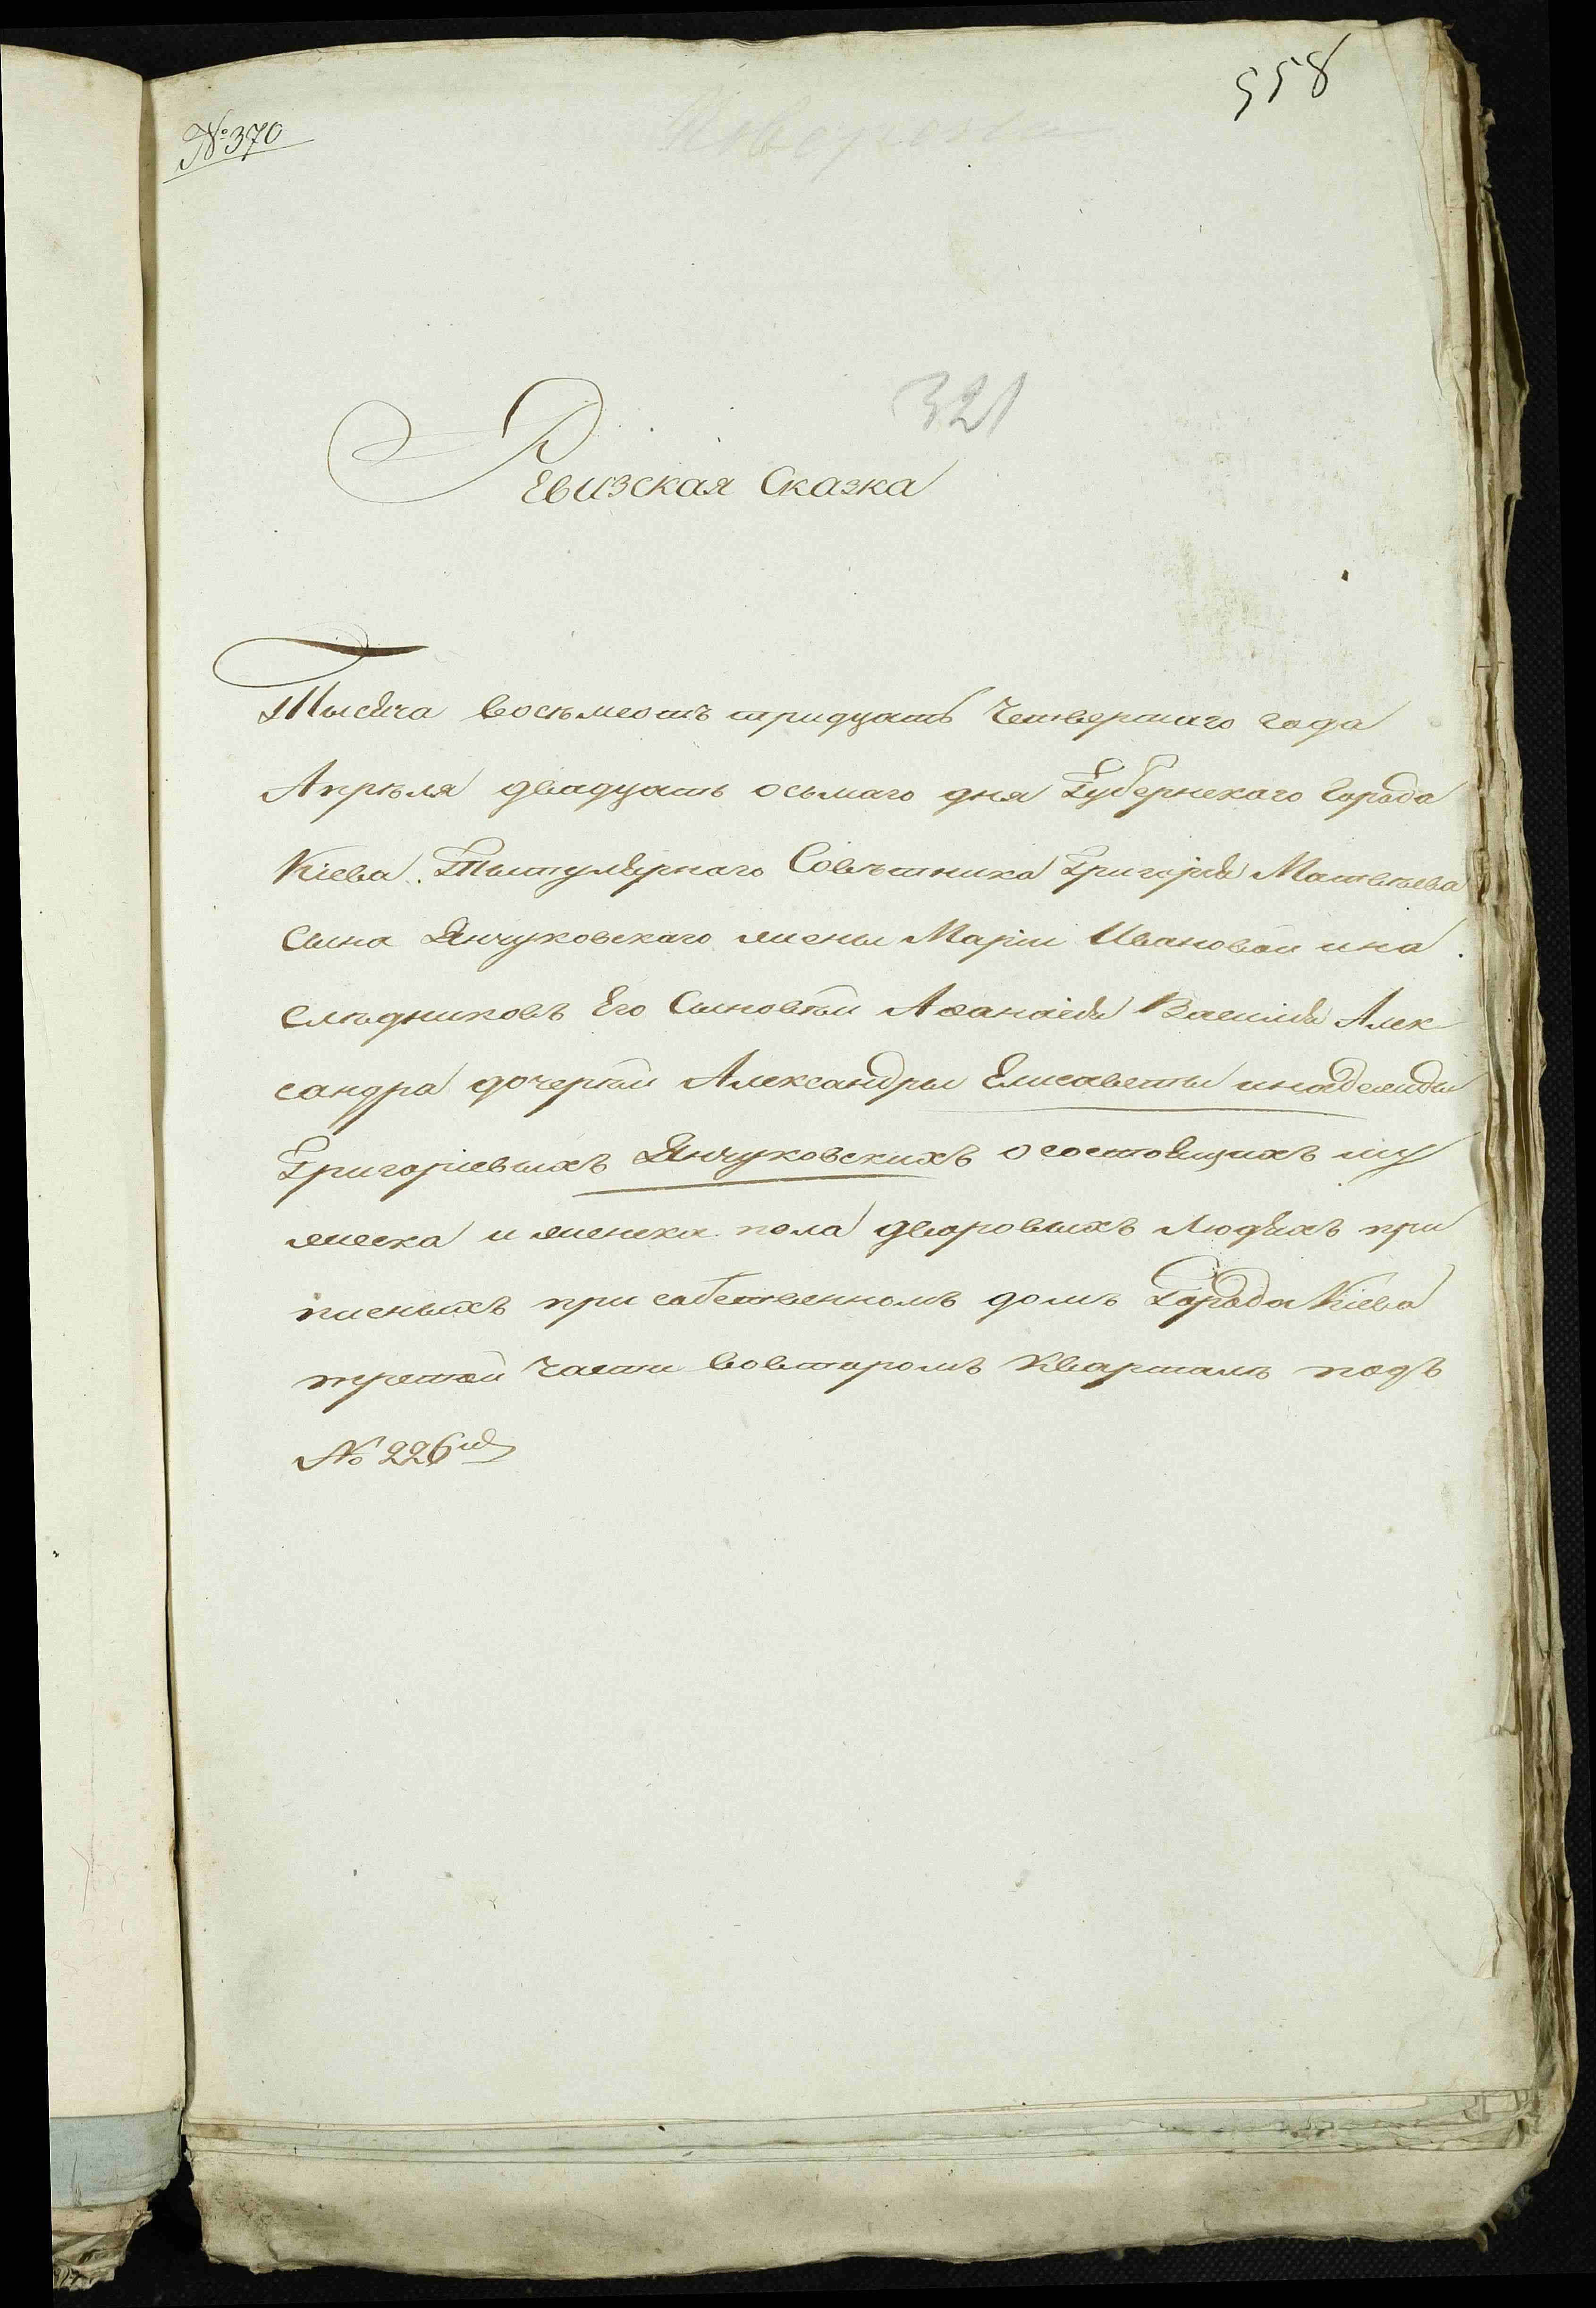 558
№ 370
321
Ревизская Сказка
Тысяча восьмсотъ тридцать Четвертаго года
Апрѣля двадцать осьмаго дня Губернскаго Города
Кіева. Тытулярнаго Совѣтника Григорія Матвѣева
сына Янчуковскаго жены Маріи Ивановой и на
слѣдниковъ Его Сыновѣй Афанасія Василія Алек
сандра дочерѣй Александры Елисаветы и надежды
Григоріевыхъ Янчуковскихъ о состоящихъ му
жеска и женска пола дворовыхъ Людяхъ при
писныхъ при собственномъ домѣ Города Кіева
третей Части вовторомъ Кварталѣ подъ
№ 226ъ